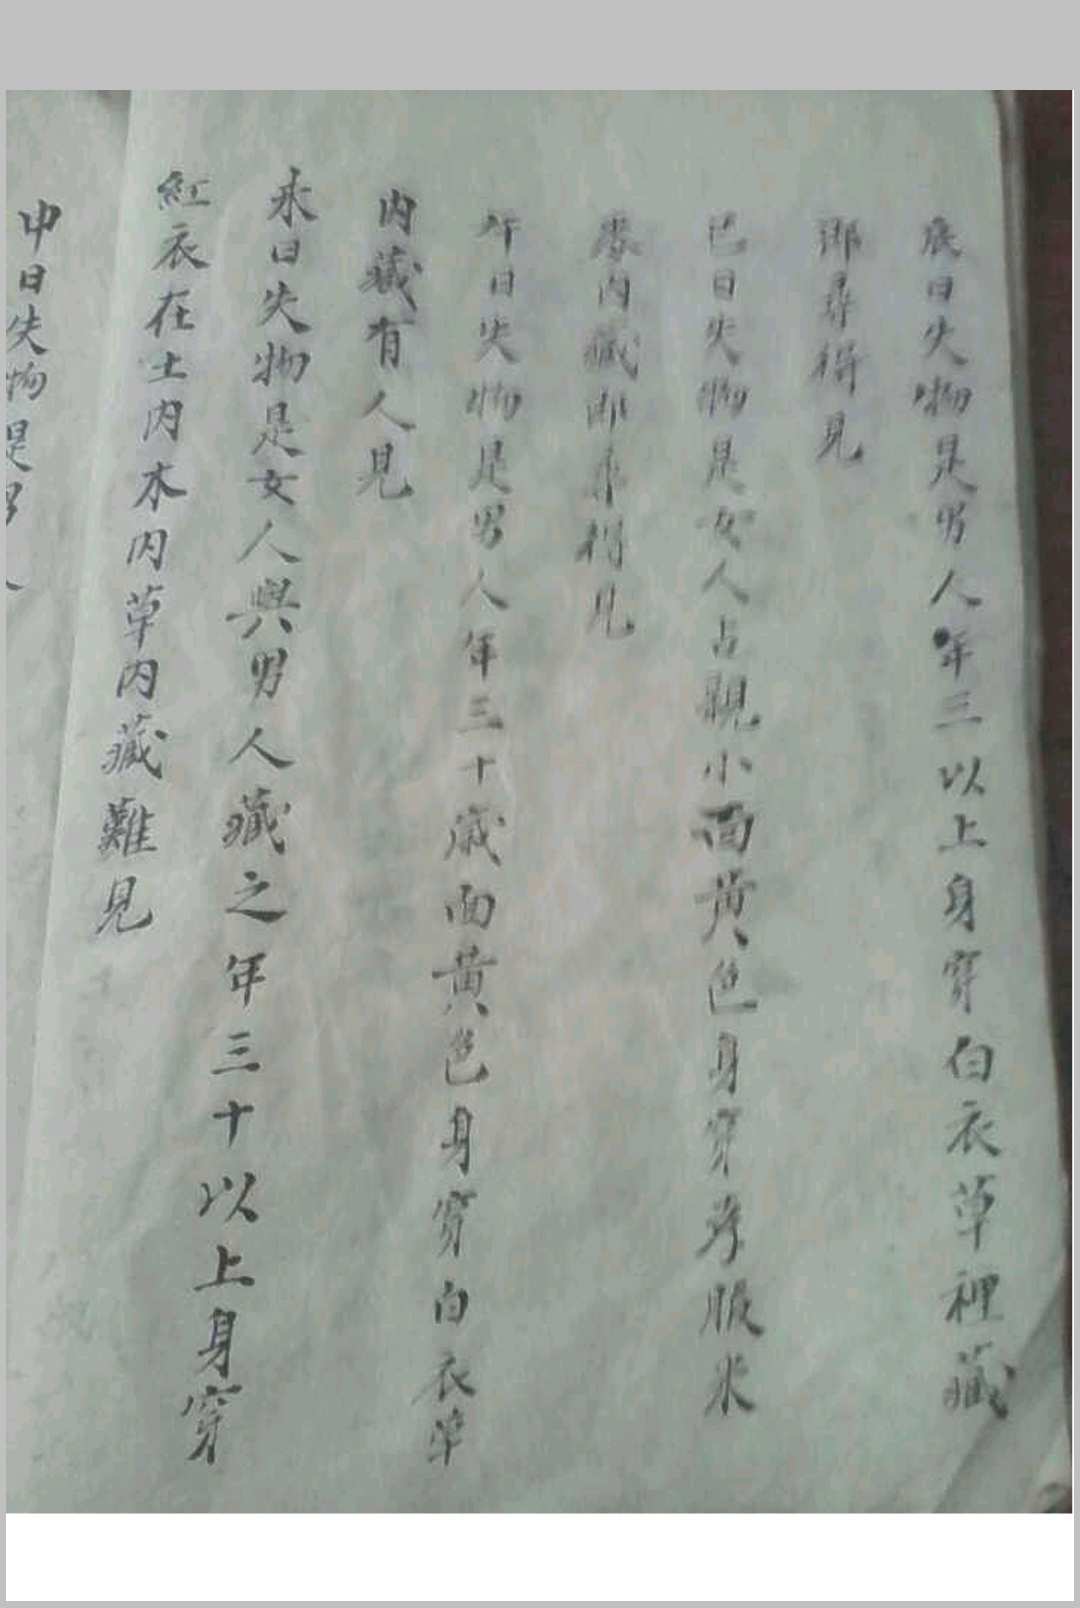 辰日失物是男人年三以上身穿白衣草裡藏
即尋得見
巳日失物是女人占親小面黄色身穿孝服米
内藏即尋得見
午日失物是男人年三十歲面黄色身穿白衣草
内藏有人見
未日失物是女人與男人藏之年三十以上身穿
紅衣在土内木内草内藏難見
申日失物是男人